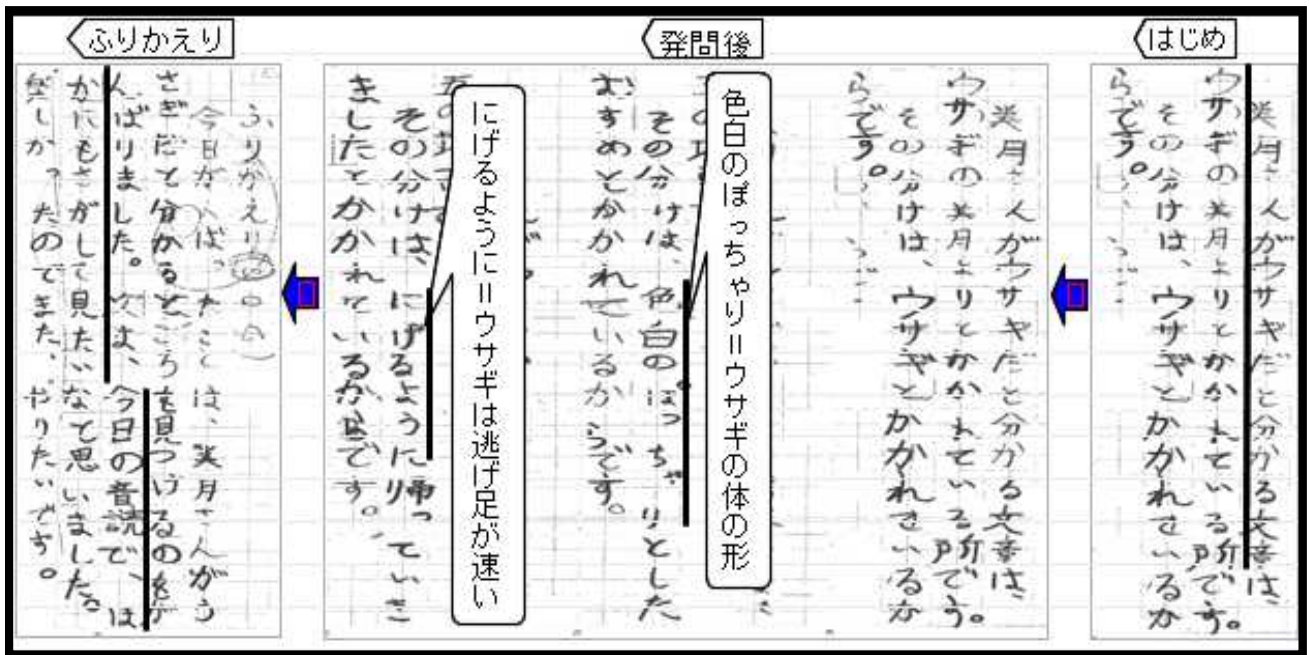 はじめ
美月さんがウサギだと分かる文章は、
ウサギの美月よりとかかれている所です。
その分けは、ウサギとかかれているか
らです。
発問後
美月さんがウサギだと分かる文章は、
ウサギの美月よりとかかれている所です。
その分けは、ウサギとかかれているか
らです。
色白のぽっちゃり=ウサギの体の形
その分けは、色白のぽっちゃりとした
むすめとかかれているからです。
にげるように=ウサギは逃げ足が速い
その分けは、にげるように帰っていき
ましたとかかれているからです。
ふりかえり
ふりがえり
今日がんばったことは、美月さんがう
さぎだと分かるところを見つけるのをが
んばりました。次は、今日の音読で、は
かにもさがして見たいなて思いました。
楽しかったのでまた、やりたいです。